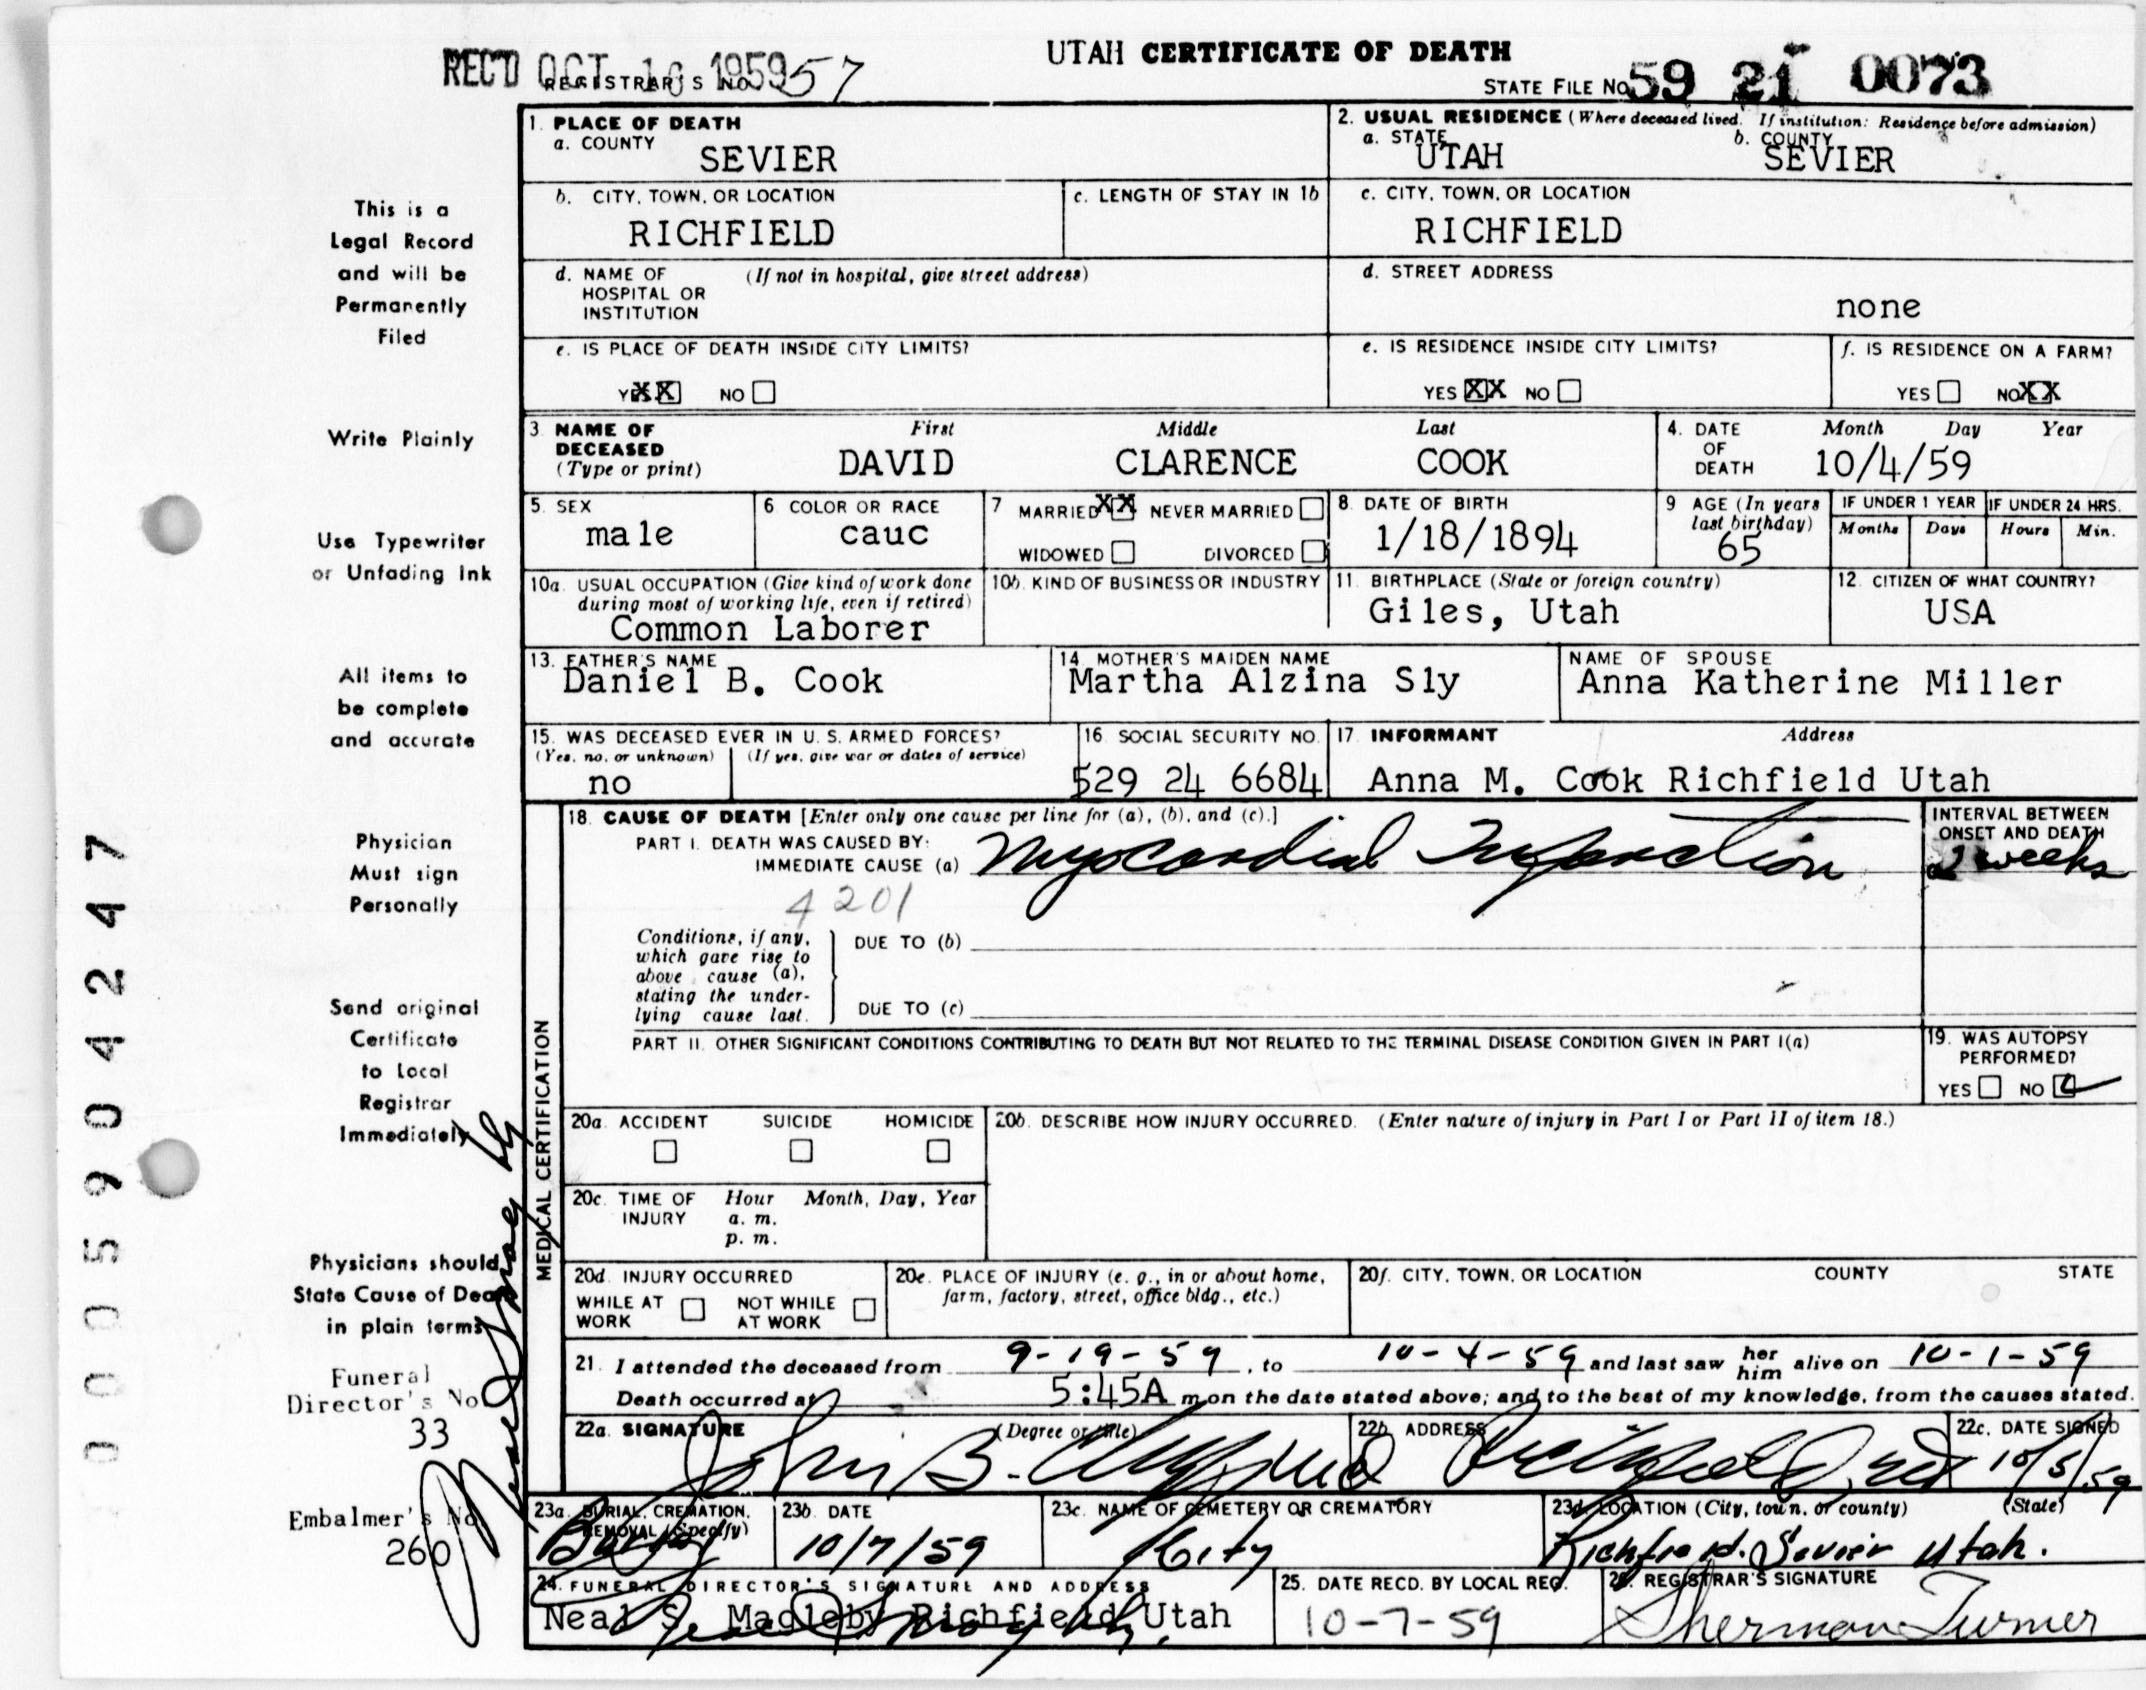 UTAH CERTIFICATE OF DEATH
REC'D OCT 16 1959
REGISTRAR'S NO. 57
STATE FILE NO. 59 21 0073
This is a
Legal Record
and will be
Permanently
Filed
Write Plainly
Use Typewriter
or Unfading Ink
All items to
be complete
and accurate
Physician
Must sign
Personally
Send original
Certificate
to Local
Registrar
Immediately
Physicians should
State Cause of Death
in plain terms
Funeral
Director's No
33
Embalmer's No
260
0005904247
1. PLACE OF DEATH
a. COUNTY
SEVIER
2. USUAL RESIDENCE (Where deceased lived. If institution: Residence before admission)
a. STATE b. COUNTY
UTAH SEVIER
b. CITY, TOWN, OR LOCATION
RICHFIELD
c. LENGTH OF STAY IN 1b
c. CITY, TOWN, OR LOCATION
RICHFIELD
d. NAME OF (If not in hospital, give street address)
HOSPITAL OR
INSTITUTION
d. STREET ADDRESS
none
e. IS PLACE OF DEATH INSIDE CITY LIMITS?
YES XX NO
e. IS RESIDENCE INSIDE CITY LIMITS?
YES XX NO
f. IS RESIDENCE ON A FARM?
YES NO XX
3. NAME OF First Middle Last
DECEASED
(Type or print) DAVID CLARENCE COOK
4. DATE Month Day Year
OF
DEATH 10/4/59
5. SEX
male
6 COLOR OR RACE
cauc
7 MARRIED XX NEVER MARRIED
WIDOWED DIVORCED
8. DATE OF BIRTH
1/18/1894
9 AGE (In years
last birthday)
65
IF UNDER 1 YEAR IF UNDER 24 HRS.
Months Days Hours Min.
10a. USUAL OCCUPATION (Give kind of work done
during most of working life, even if retired)
Common Laborer
10b. KIND OF BUSINESS OR INDUSTRY
11. BIRTHPLACE (State or foreign country)
Giles, Utah
12. CITIZEN OF WHAT COUNTRY?
USA
13. FATHER'S NAME
Daniel B. Cook
14. MOTHER'S MAIDEN NAME
Martha Alzina Sly
NAME OF SPOUSE
Anna Katherine Miller
15. WAS DECEASED EVER IN U. S. ARMED FORCES?
(Yes, no, or unknown) (If yes, give war or dates of service)
no
16. SOCIAL SECURITY NO.
529 24 6684
17. INFORMANT Address
Anna M. Cook Richfield Utah
MEDICAL CERTIFICATION
18. CAUSE OF DEATH [Enter only one cause per line for (a), (b), and (c).]
PART I. DEATH WAS CAUSED BY:
IMMEDIATE CAUSE (a) Myocardial Infarction
INTERVAL BETWEEN
ONSET AND DEATH
2 weeks
4201
Conditions, if any,
which gave rise to
above cause (a),
stating the under-
lying cause last.
DUE TO (b)
DUE TO (c)
PART II. OTHER SIGNIFICANT CONDITIONS CONTRIBUTING TO DEATH BUT NOT RELATED TO THE TERMINAL DISEASE CONDITION GIVEN IN PART I(a)
19. WAS AUTOPSY
PERFORMED?
YES NO
20a. ACCIDENT SUICIDE HOMICIDE
20b. DESCRIBE HOW INJURY OCCURRED. (Enter nature of injury in Part I or Part II of item 18.)
20c. TIME OF Hour Month, Day, Year
INJURY a. m.
p. m.
20d. INJURY OCCURRED
WHILE AT NOT WHILE
WORK AT WORK
20e. PLACE OF INJURY (e. g., in or about home,
farm, factory, street, office bldg., etc.)
20f. CITY, TOWN, OR LOCATION COUNTY STATE
21. I attended the deceased from 9-19-59, to 10-4-59 and last saw her him alive on 10-1-59
Death occurred at 5:45A m on the date stated above; and to the best of my knowledge, from the causes stated.
22a. SIGNATURE (Degree or title)
John B.
22b. ADDRESS
Richfield
22c. DATE SIGNED
10/5/59
23a. BURIAL, CREMATION,
REMOVAL (Specify)
Burial
23b. DATE
10/7/59
23c. NAME OF CEMETERY OR CREMATORY
City
23d. LOCATION (City, town, or county) (State)
Richfield. Sevier Utah.
24. FUNERAL DIRECTOR'S SIGNATURE AND ADDRESS
Neal S. Magleby Richfield Utah
25. DATE RECD. BY LOCAL REG.
10-7-59
26. REGISTRAR'S SIGNATURE
Sherman Turner